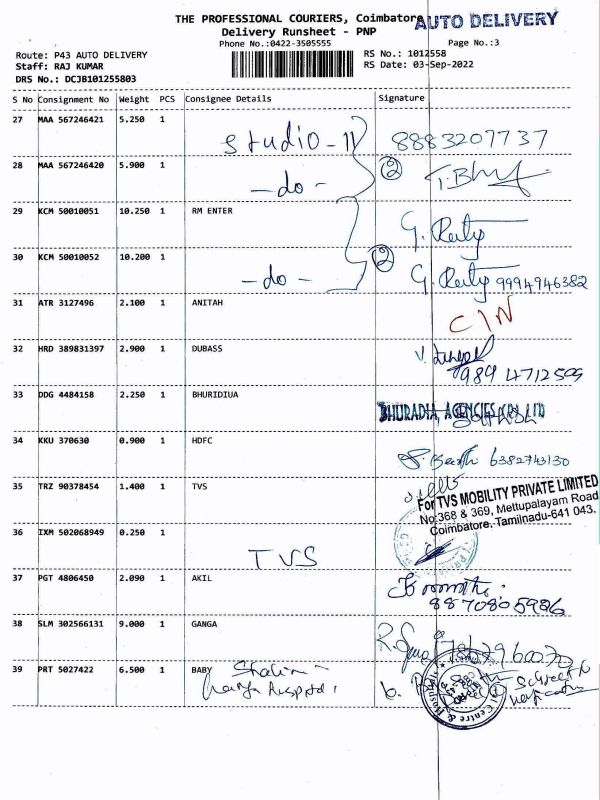 THE PROFESSIONAL COURIERS, Coimbatore
AUTO DELIVERY
Delivery Runsheet - PNP
Phone No.:0422-3505555
Page No.:3
Route: P43 AUTO DELIVERY
RS No.: 1012558
Staff: RAJ KUMAR
RS Date: 03-Sep-2022
DRS No.: DCJB101255803
S No Consignment No Weight PCS Consignee Details Signature
27 MAA 567246421 5.250 1 Studio-11 8883207737
28 MAA 567246420 5.900 1 -do- 2
29 KCM 50010051 10.250 1 RM ENTER
30 KCM 50010052 10.200 1 -do- 2 9994946382
31 ATR 3127496 2.100 1 ANITAH
32 HRD 389831397 2.900 1 DUBASS
33 DDG 4484158 2.250 1 BHURIDIUA BHURADIA AGENCIES (P) LTD
34 KKU 370630 0.900 1 HDFC 6382743130
35 TRZ 90378454 1.400 1 TVS
For TVS MOBILITY PRIVATE LIMITED
No:368 & 369, Mettupalayam Road
Coimbatore, Tamilnadu-641 043.
36 IXM 502068949 0.250 1 TVS
37 PGT 4806450 2.090 1 AKIL
8870805986
38 SLM 302566131 9.000 1 GANGA
39 PRT 5027422 6.500 1 BABY